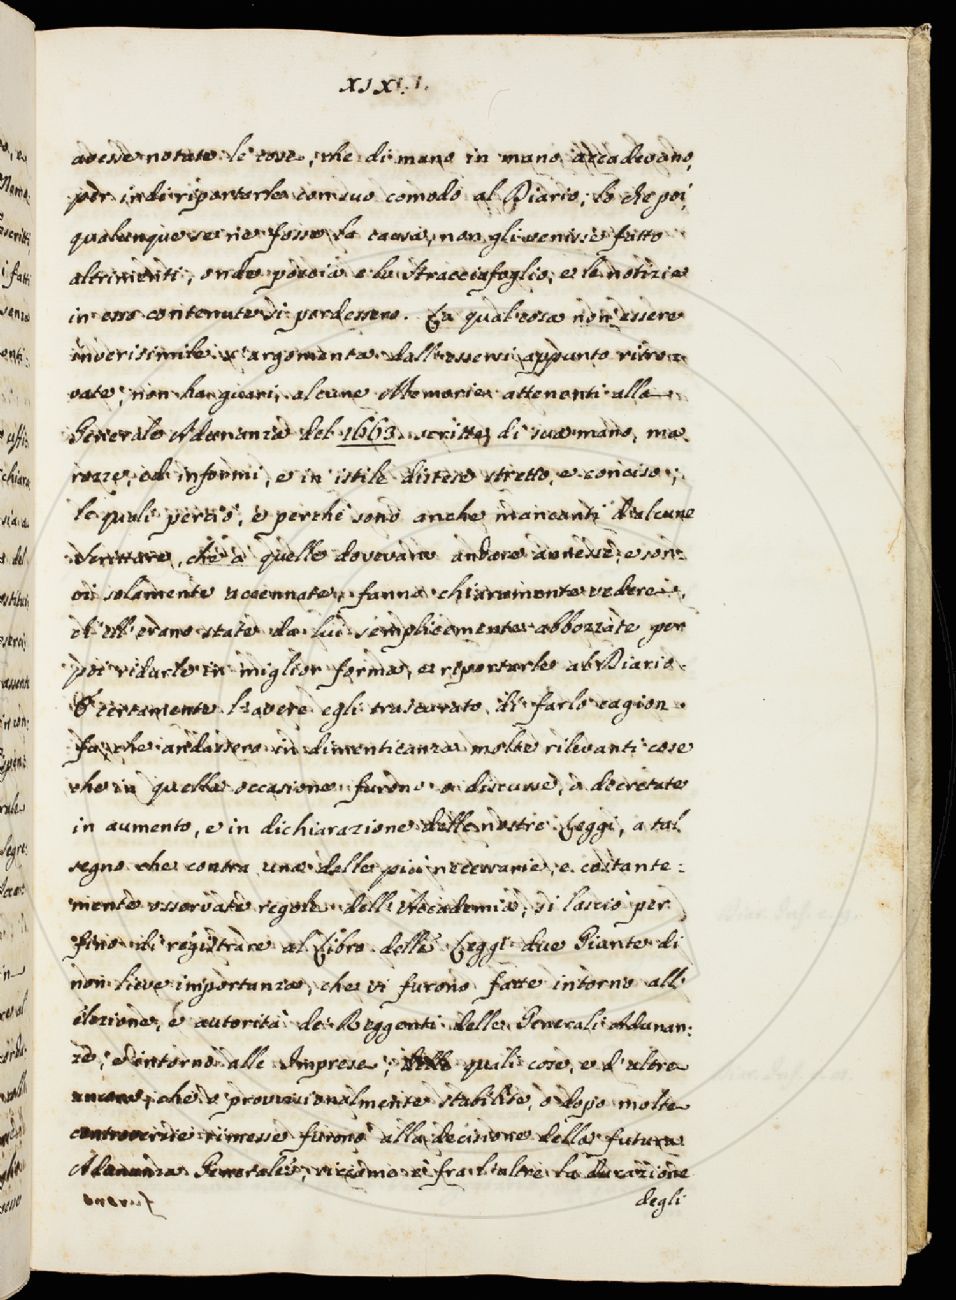 avesse notate le cose, che di mano in mano accadevano,
per indi riportarle con suo comodo al Diario; lo che poi
qualunque se ne fosse la causa, non gli venisse fatto
altrimenti, onde poscia e lo Stracciafoglio, e le notizie
in esso contenute si perdessero. La qual cosa non essere
inverisimile s'argomenta dall'essersi appunto ritro-
vate, non ha guari, alcune Memorie attenenti alla
Generale Adunanza del 1663. scritte di sua mano, ma
rozze, ed informi, e in istile disteso stretto, e conciso;
le quali perciò, e perchè sono anche mancanti d'alcune
Scritture, che a quelle dovevano andare annesse, e son
vi solamente accennate, fanno chiaramente vedere,
ch'ell'erano state da lui semplicemente abbozzate per
poi ridurle in miglior forma, e riportarle al Diario.
E certamente l'avere egli trascurato di farlo cagion
fu, che andassero in dimenticanza molte rilevanti cose
che in quella occasione furono o discusse, o decretate
in aumento, e in dichiarazione delle nostre Leggi, a tal
segno che contra una delle più necessarie, e costante-
mente osservate regole dell'Accademia, si lasciò per
fino di registrare al Libro delle Leggi due Giunte di
non lieve importanza, che vi furono fatte intorno all'
elezione, e autorità de' Reggenti delle Generali Adunan-
ze, ed intorno alle Imprese; delle quali cose, e d'altre
ancora, che o provvisionalmente stabilite, o dopo molte
controversie rimesse furono alla decisione della futura
Adunanza Generale, siccome è fra l'altre la durazione
degli